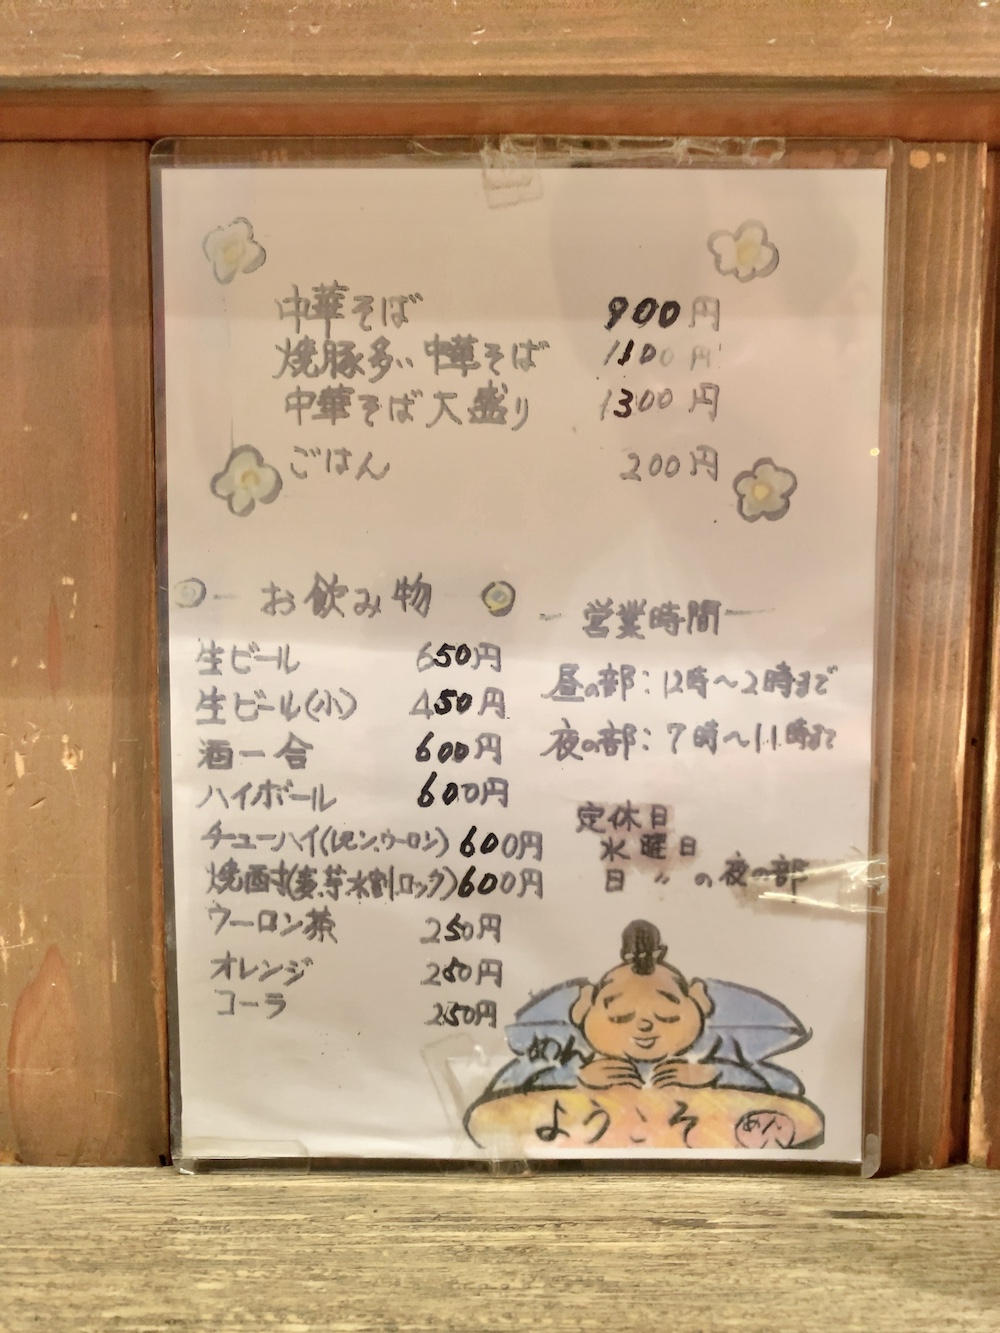 中華そば 900円
焼豚多い中華そば 1100円
中華そば大盛り 1300円
ごはん 200円
お飲み物
生ビール 650円
生ビール(小) 450円
酒一合 600円
ハイボール 600円
チューハイ(レモン、ウーロン) 600円
焼酎(麦.芋水割.ロック) 600円
ウーロン茶 250円
オレンジ 250円
コーラ 250円
営業時間
昼の部:12時〜2時まで
夜の部:7時〜11時まで
定休日
水曜日
日〃の夜の部
めん
ようこそ